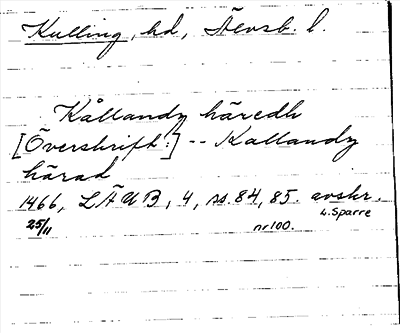 Kulling, hd, Älvsb. l.
Kållandz häredh
[Överskrift:] -- Kallandz
härad
1466, LÄUB, 4, ss. 84, 85. avskr.
25/11 nr 100. L. Sparre